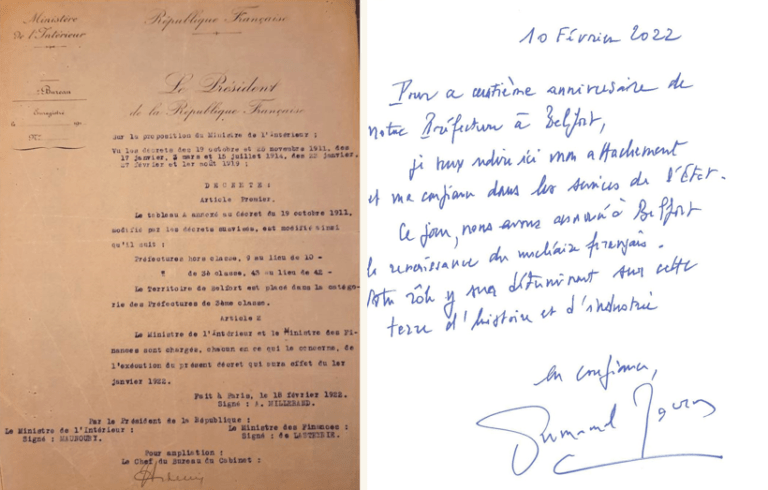 Ministère
de l'Intérieur
République Française
Bureau
Le Président
de la République Française
Sur la proposition du Ministre de l'Intérieur ;
Vu les décrets des 19 octobre et 25 novembre 1911, des
17 janvier, 3 mars et 15 juillet 1914, des 22 janvier,
27 février et 1er août 1919 ;
DECRETE :
Article Premier.
Le tableau A annexé au décret du 19 octobre 1911,
modifié par les décrets susvisés, est modifié ainsi
qu'il suit :
Préfectures hors classe, 9 au lieu de 10 -
" de 3è classe, 43 au lieu de 42 -
Le Territoire de Belfort est placé dans la catégo-
rie des Préfectures de 3ème classe.
Article 2
Le Ministre de l'Intérieur et le Ministre des Fi-
nances sont chargés, chacun en ce qui le concerne, de
l'exécution du présent décret qui aura effet du 1er
janvier 1922.
Fait à Paris, le 18 février 1922.
Signé : A. MILLERAND.
Par le Président de la République :
Le Ministre de l'Intérieur :
Signé : MAUNOURY.
Le Ministre des Finances :
Signé : de LASTEYRIE.
Pour ampliation :
Le Chef du Bureau du Cabinet :
10 Février 2022
Pour ce centième anniversaire de
notre Préfecture à Belfort,
je veux redire ici mon attachement
et ma confiance dans les services de l'État.
Ce jour, nous avons annoncé à Belfort
la renaissance du nucléaire français.
Votre rôle y sera déterminant sur cette
terre d'histoire et d'industrie
en confiance,